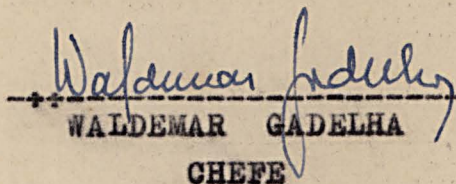 Waldemar Gadelha
WALDEMAR GADELHA
CHEFE